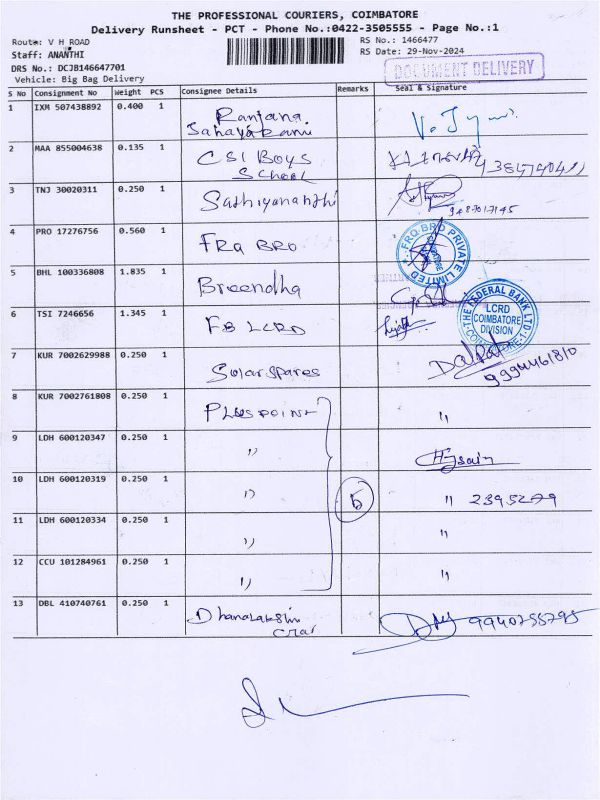 THE PROFESSIONAL COURIERS, COIMBATORE
Delivery Runsheet - PCT - Phone No.:0422-3505555 - Page No.:1
Route: V H ROAD RS No.: 1466477
Staff: ANANTHI RS Date: 29-Nov-2024
DRS No.: DCJB146647701 DOCUMENT DELIVERY
Vehicle: Big Bag Delivery
S No Consignment No Weight PCS Consignee Details Remarks Seal & Signature
1 IXM 507438892 0.400 1 Ranjana
Sahayarani
2 MAA 855004638 0.135 1 CSI BOYS
SCHOOL
3 TNJ 30020311 0.250 1 Sathiyananthi
4 PRO 17276756 0.560 1 FRQ BRO FRQ BRO PRIVATE LIMITED
5 BHL 100336808 1.835 1 Breendha
6 TSI 7246656 1.345 1 FB LCRD THE FEDERAL BANK LTD
LCRD
COIMBATORE
DIVISION
COIMBATORE-1
7 KUR 7002629988 0.250 1 Solar Spares
8 KUR 7002761808 0.250 1 PLUSPOINT "
9 LDH 600120347 0.250 1 "
10 LDH 600120319 0.250 1 " 5 " 2395279
11 LDH 600120334 0.250 1 " "
12 CCU 101284961 0.250 1 " "
13 DBL 410740761 0.250 1 Dhanalakshmi 9940755795